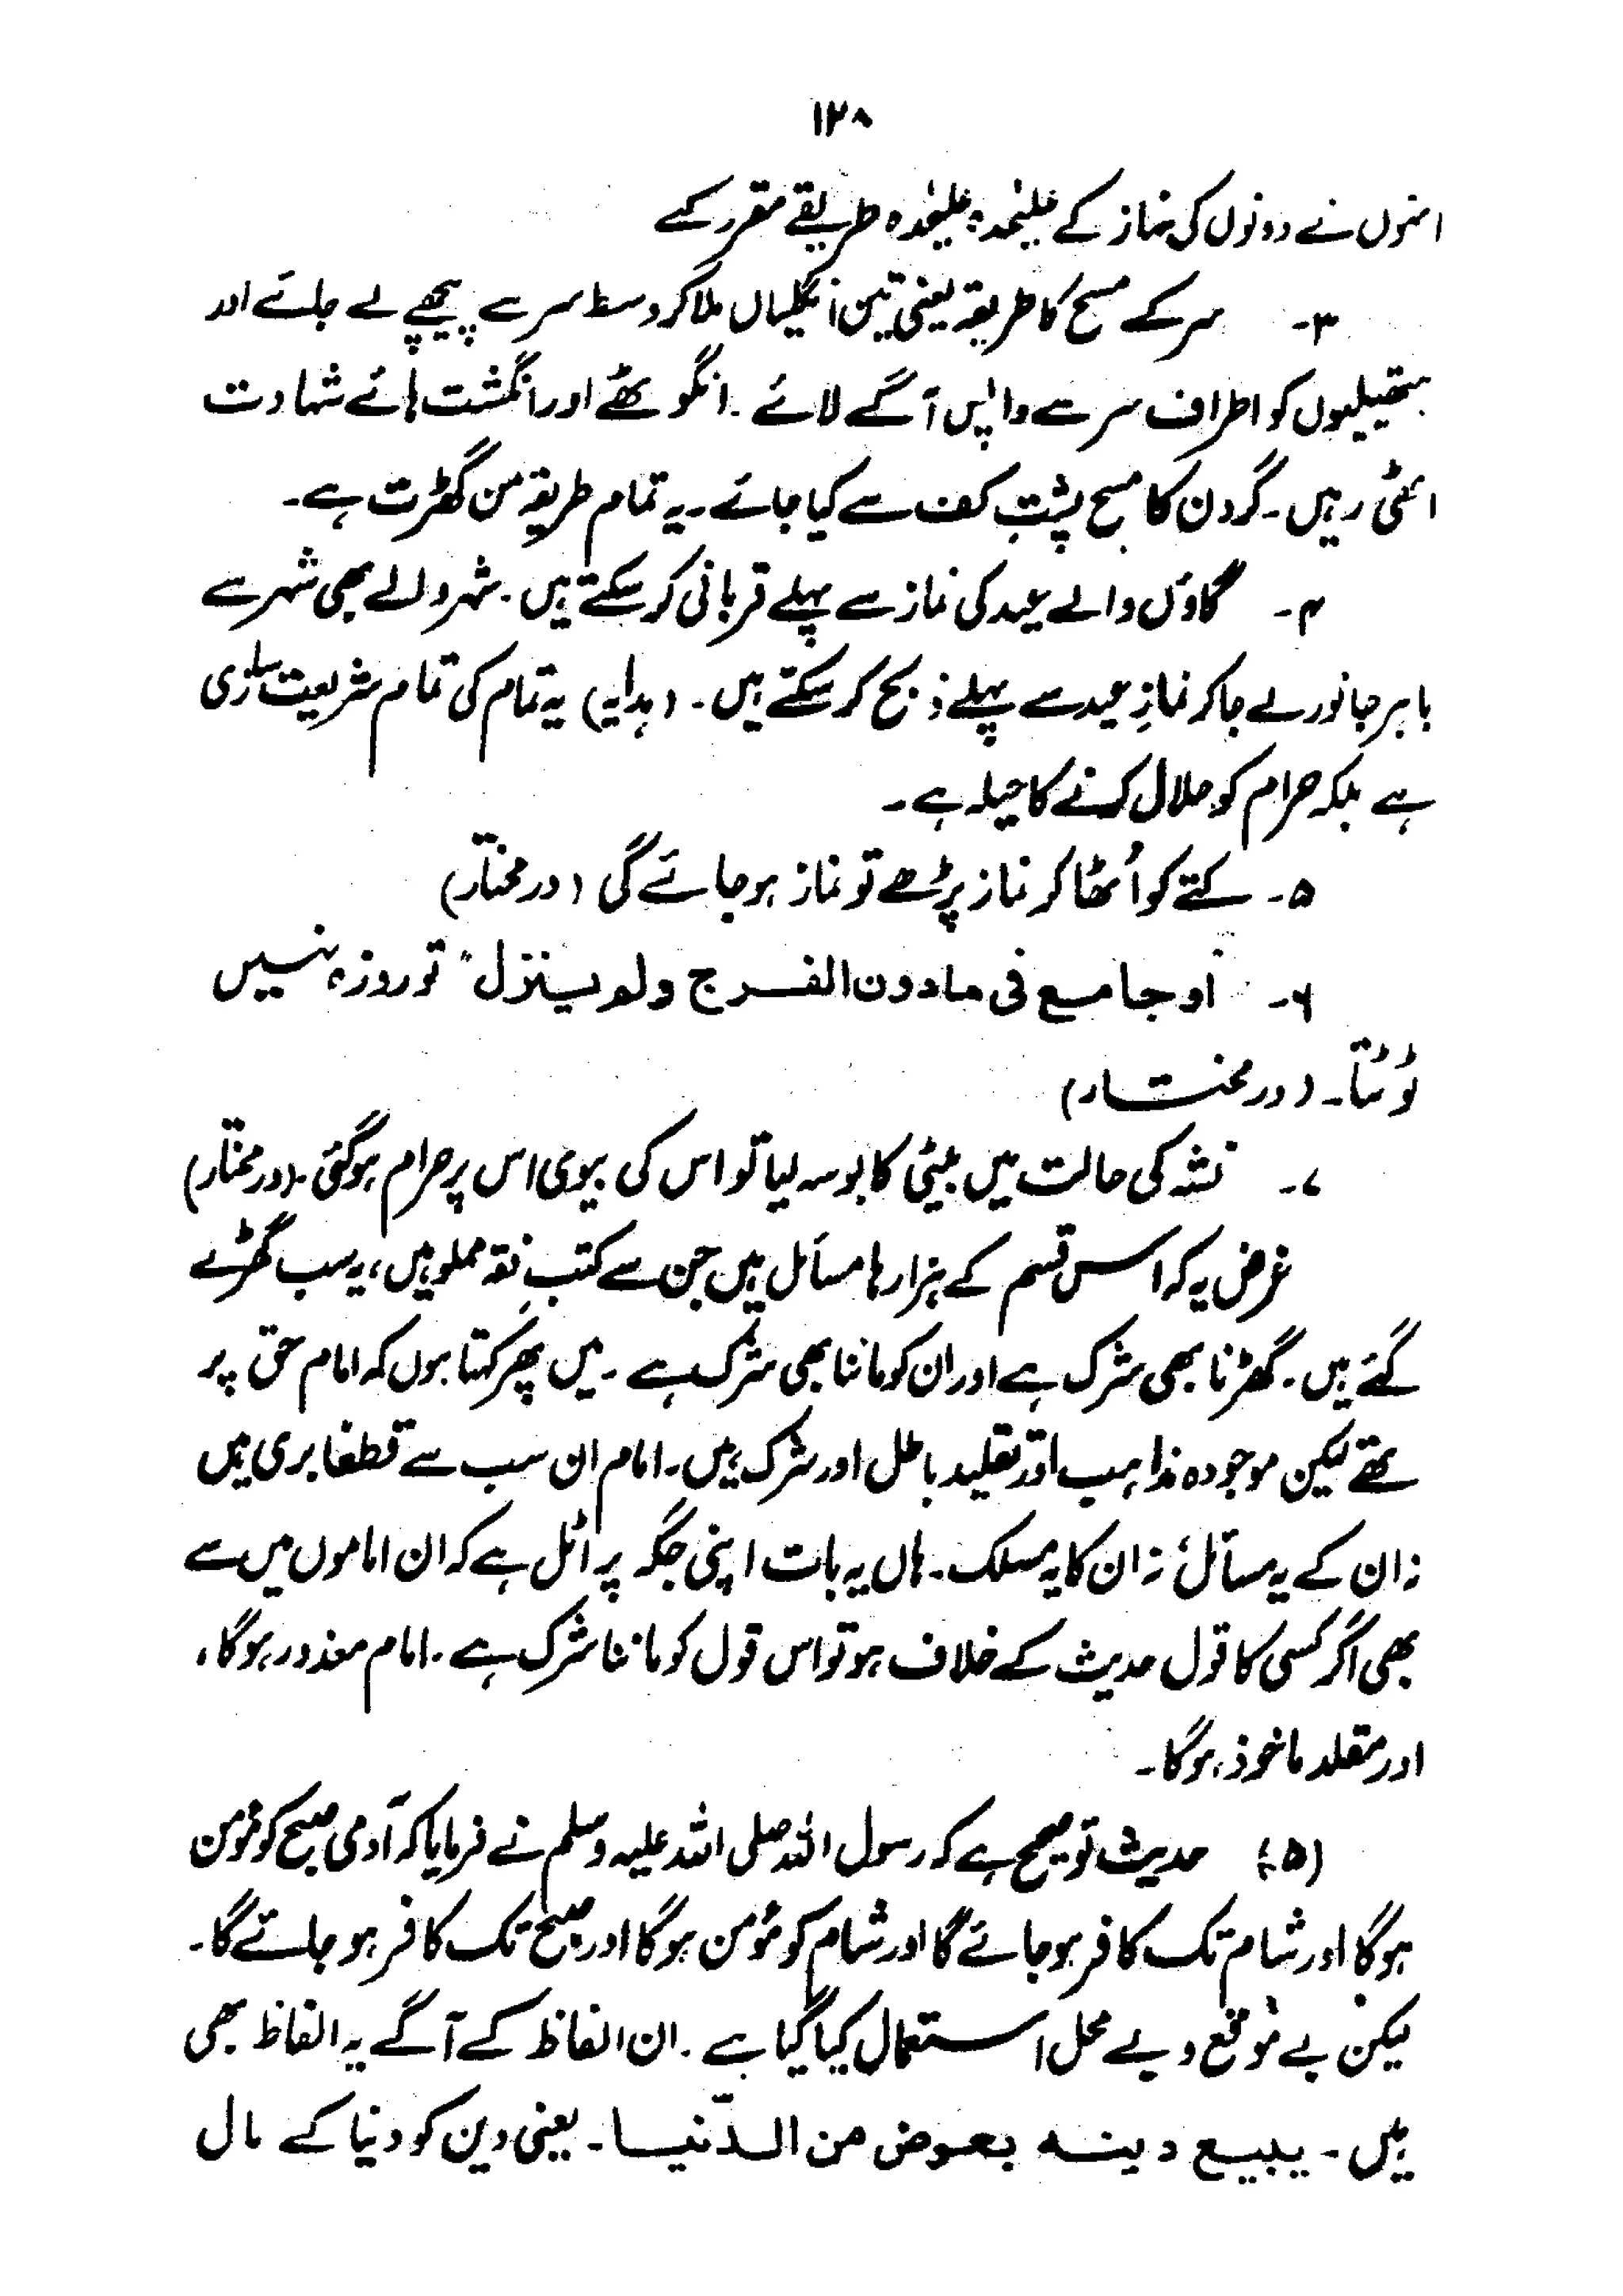 ۱۲۸
انہوں نے دونوں کی نماز کے علیٰحدہ علیٰحدہ طریقے مقرر کئے
۳۔ سر کے مسح کا طریقہ یعنی تین انگلیاں ملا کر وسط سر سے پیچھے لے جائے اور
ہتھیلیوں کو اطراف سر سے واپس آگے لائے۔ انگوٹھے اور انگشت ہائے شہادت
اٹھی رہیں۔ گردن کا مسح پشتِ کف سے کیا جائے۔ یہ تمام طریقہ من گھڑت ہے۔
۴۔ گاؤں والے عید کی نماز سے پہلے قربانی کر سکتے ہیں۔ شہر والے بھی شہر سے
باہر جانور لے جا کر نمازِ عید سے پہلے ذبح کر سکتے ہیں۔ (ہدایہ) یہ تمام کی تمام شریعت سازی
ہے بلکہ حرام کو حلال کرنے کا حیلہ ہے۔
۵۔ کتے کو اُٹھا کر نماز پڑھے تو نماز ہو جائے گی (در مختار)
۶۔ اوجامع فی مادون الفرج ولو ینزل" تو روزہ نہیں
ٹوٹتا۔ (در مختار)
۷۔ نشہ کی حالت میں بیٹی کا بوسہ لیا تو اس کی بیوی اس پر حرام ہو گئی۔ (در مختار)
غرض یہ کہ اس قسم کے ہزارہا مسائل ہیں جن سے کتبِ فقہ مملو ہیں، یہ سب گھڑے
گئے ہیں۔ گھڑنا بھی شرک ہے اور ان کو ماننا بھی شرک ہے۔ میں پھر کہتا ہوں کہ امام حق پر
تھے لیکن موجودہ مذاہب اور تقلید باطل اور شرک ہیں۔ امام ان سب سے قطعاً بری ہیں
نہ ان کے یہ مسائل نہ ان کا یہ مسلک۔ ہاں یہ بات اپنی جگہ پر اٹل ہے کہ ان اماموں میں سے
بھی اگر کسی کا قول حدیث کے خلاف ہو تو اس قول کو ماننا شرک ہے۔ امام معذور ہوگا،
اور مقلد ماخوذ ہوگا۔
(۵) حدیث تو صحیح ہے کہ رسول اللہ صلی اللہ علیہ وسلم نے فرمایا کہ آدمی صبح کو مؤمن
ہوگا اور شام تک کافر ہو جائے گا اور شام کو مؤمن ہوگا اور صبح تک کافر ہو جائے گا۔
لیکن بے موقع و بے محل استعمال کیا گیا ہے۔ ان الفاظ کے آگے یہ الفاظ بھی
ہیں۔ یبیع دینہ بعوض من الدّنیا۔ یعنی دین کو دنیا کے مال